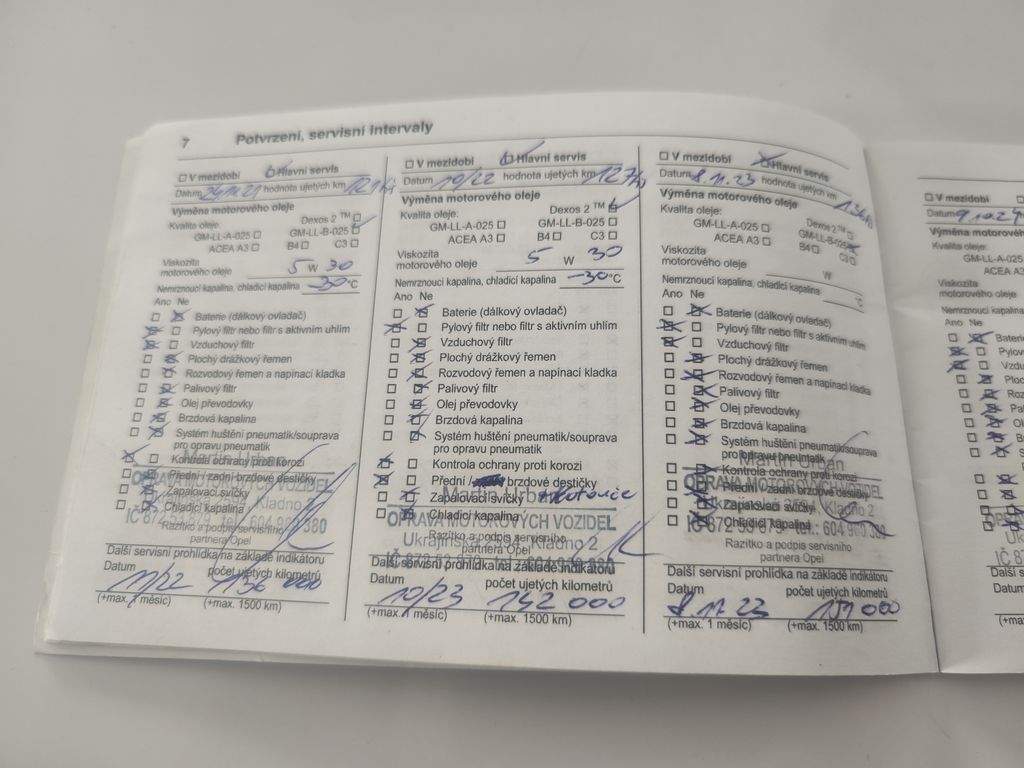 7 Potvrzení, servisní intervaly
☐ V mezidobí ☑ Hlavní servis
Datum 24.11.21 hodnota ujetých km 121
Výměna motorového oleje
Kvalita oleje: Dexos 2 ™ ☐
GM-LL-A-025 ☐ GM-LL-B-025 ☑
ACEA A3 ☐ B4 ☐ C3 ☐
Viskozita
motorového oleje 5 W 30
Nemrznoucí kapalina, chladicí kapalina -30 °C
Ano Ne
☐ ☒ Baterie (dálkový ovladač)
☒ ☐ Pylový filtr nebo filtr s aktivním uhlím
☒ ☐ Vzduchový filtr
☐ ☒ Plochý drážkový řemen
☐ ☒ Rozvodový řemen a napínací kladka
☐ ☒ Palivový filtr
☐ ☒ Olej převodovky
☐ ☒ Brzdová kapalina
☐ ☒ Systém huštění pneumatik/souprava
pro opravu pneumatik
☒ ☐ Kontrola ochrany proti korozi
Přední / zadní brzdové destičky
Zapalovací svíčky
Chladicí kapalina
Martin Urban
OPRAVA MOTOROVÝCH VOZIDEL
Kladno 2
Razítko a podpis servisního
partnera Opel
Další servisní prohlídka/na základě indikátoru
Datum počet ujetých kilometrů
11/22 136 000
(+max. 1 měsíc) (+max. 1500 km)
☐ V mezidobí ☑ Hlavní servis
Datum 10/22 hodnota ujetých km 127
Výměna motorového oleje
Kvalita oleje: Dexos 2 ™ ☑
GM-LL-A-025 ☐ GM-LL-B-025 ☐
ACEA A3 ☐ B4 ☐ C3 ☐
Viskozita
motorového oleje 5 W 30
Nemrznoucí kapalina, chladicí kapalina -30 °C
Ano Ne
☐ ☒ Baterie (dálkový ovladač)
☒ ☐ Pylový filtr nebo filtr s aktivním uhlím
☐ ☒ Vzduchový filtr
☐ ☒ Plochý drážkový řemen
☐ ☒ Rozvodový řemen a napínací kladka
☐ ☒ Palivový filtr
☐ ☒ Olej převodovky
☐ ☒ Brzdová kapalina
☐ ☒ Systém huštění pneumatik/souprava
pro opravu pneumatik
☒ ☐ Kontrola ochrany proti korozi
☒ ☐ Přední brzdové destičky
Zapalovací svíčky
Chladicí kapalina
Martin Urban
OPRAVA MOTOROVÝCH VOZIDEL
Ukrajinská Kladno 2
Razítko a podpis servisního
partnera Opel
Další servisní prohlídka/na základě indikátoru
Datum počet ujetých kilometrů
10/23 142 000
(+max. 1 měsíc) (+max. 1500 km)
☐ V mezidobí ☒ Hlavní servis
Datum 8.11.23 hodnota ujetých km
Výměna motorového oleje
Kvalita oleje: Dexos 2 ™ ☐
GM-LL-A-025 ☐ GM-LL-B-025 ☒
ACEA A3 ☐ B4 ☐ C3 ☐
Viskozita
motorového oleje W
Nemrznoucí kapalina, chladicí kapalina °C
Ano Ne
☐ ☒ Baterie (dálkový ovladač)
☒ ☐ Pylový filtr nebo filtr s aktivním uhlím
☒ ☐ Vzduchový filtr
☐ ☒ Plochý drážkový řemen
☐ ☒ Rozvodový řemen a napínací kladka
☐ ☒ Palivový filtr
☐ ☒ Olej převodovky
☐ ☒ Brzdová kapalina
☐ ☒ Systém huštění pneumatik/souprava
pro opravu pneumatik
Kontrola ochrany proti korozi
Přední / zadní brzdové destičky
Zapalovací svíčky
Chladicí kapalina
Martin Urban
OPRAVA MOTOROVÝCH VOZIDEL
Razítko a podpis servisního
partnera Opel
Další servisní prohlídka/na základě indikátoru
Datum počet ujetých kilometrů
8.11.23 151 000
(+max. 1 měsíc) (+max. 1500 km)
☐ V mezidobí
Datum
Výměna motorového
Kvalita oleje:
GM-LL-A-025
ACEA A3
Viskozita
motorového oleje
Nemrznoucí kapalina,
Ano Ne